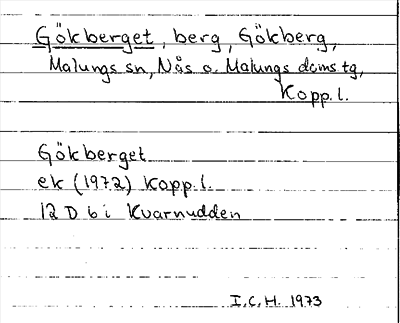 Gökberget, berg, Gökberg,
Malungs sn, Nås o. Malungs doms tg,
Kopp. l.
Gökberget
ek (1972) Kopp. l.
12 D 6 i Kvarnudden
I.C.H. 1973